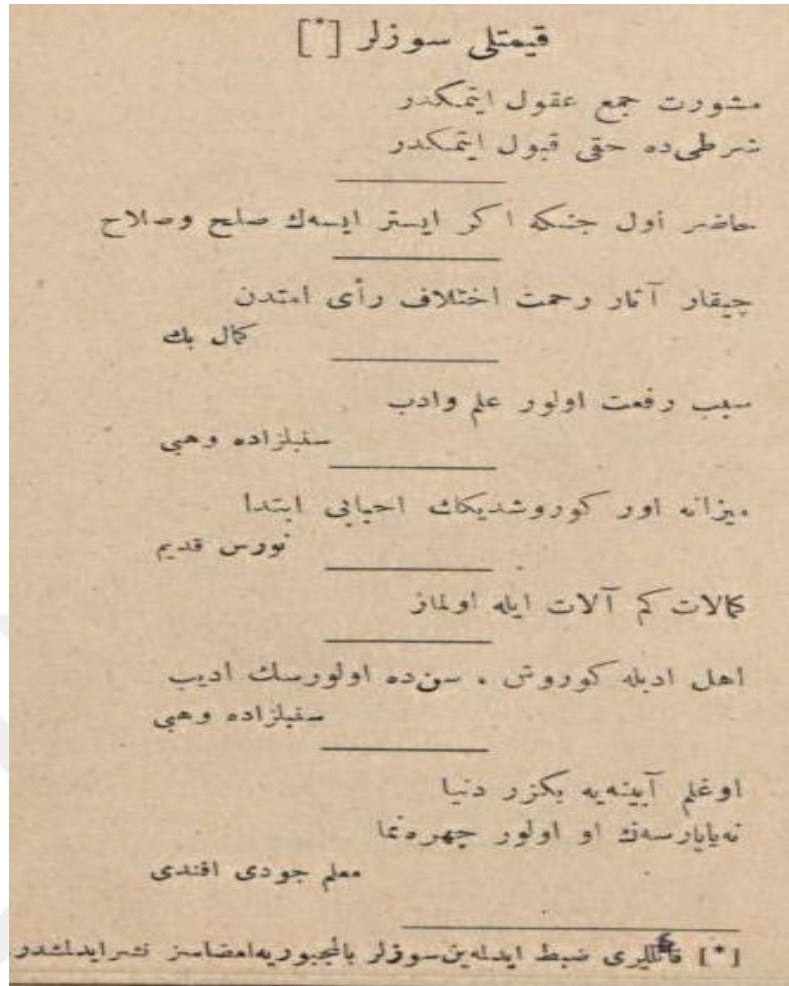 قیمتلی سوزلر [*]
مشورت جمع عقول ایتمکدر
شرطی‌ده حقی قبول ایتمکدر
حاضر اول جنکه اکر ایستر ایسه‌ك صلح وصلاح
چیقار آثار رحمت اختلاف رأی امتدن
کمال بك
سبب رفعت اولور علم وادب
سنبلزاده وهبی
میزانه اور کوروشدیکك احبابی ابتدا
نورس قدیم
کمالات کم آلات ایله اولماز
اهل ادبله کوروش . سن‌ده اولورسك ادیب
سنبلزاده وهبی
اوغلم آیینه‌یه بکزر دنیا
نه‌یاپارسه‌ڭ او اولور چهره‌نما
معلم جودی افندی
[*] قائللری ضبط ایدله‌ین سوزلر بالمجبوریه‌امضاسز نشر ایدلمشدر